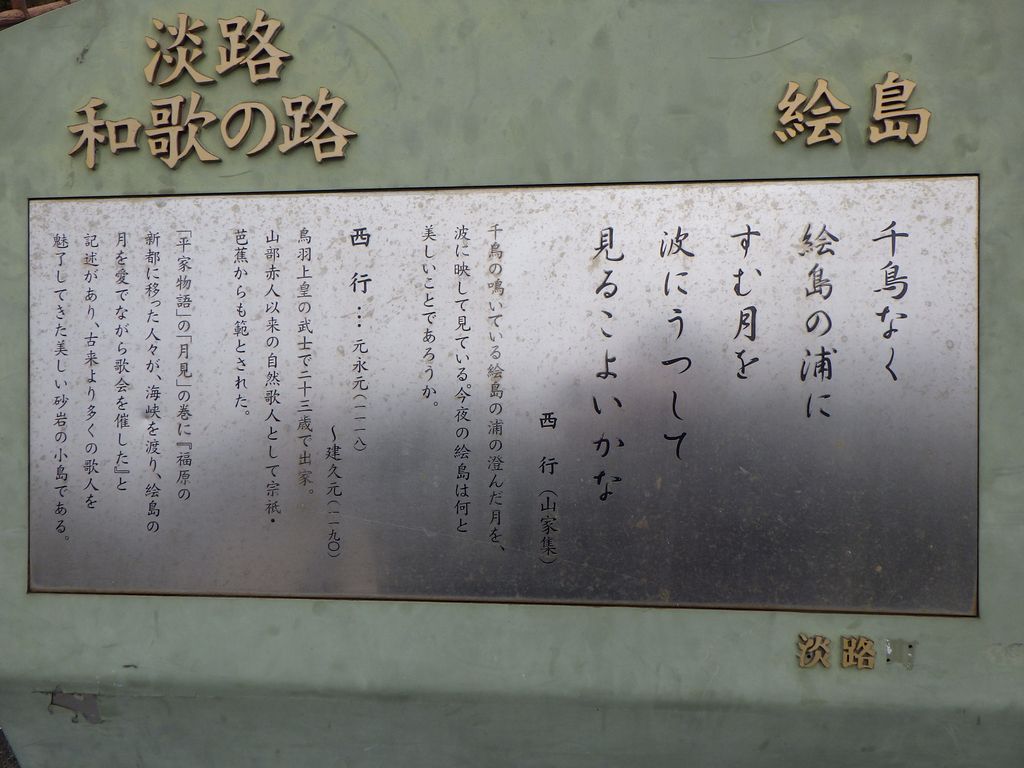 淡路
和歌の路
絵島
千鳥なく
絵島の浦に
すむ月を
波にうつして
見るこよいかな
西 行（山家集）
千鳥の鳴いている絵島の浦の澄んだ月を、
波に映して見ている。今夜の絵島は何と
美しいことであろうか。
西 行…元永元（一一一八）
～建久元（一一九〇）
鳥羽上皇の武士で二十三歳で出家。
山部赤人以来の自然歌人として宗祇・
芭蕉からも範とされた。
「平家物語」の「月見」の巻に『福原の
新都に移った人々が、海峡を渡り、絵島の
月を愛でながら歌会を催した』と
記述があり、古来より多くの歌人を
魅了してきた美しい砂岩の小島である。
淡路